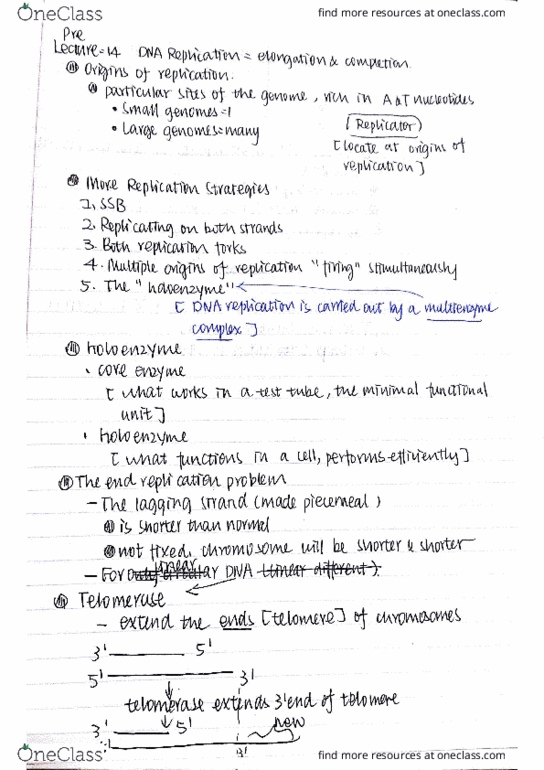 OneClass
find more resources at oneclass.com
Pre
Lecture-14 DNA Replication = elongation & completion.
Origins of replication.
particular sites of the genome, rich in A&T nucleotides
• Small genomes=1
• Large genomes=many
[Replicator]
[locate at origins of
replication]
More Replication Strategies
1, SSB
2. Replicating on both strands
3. Both replication forks
4. Multiple origins of replication "firing" stimultaneously
5. The "holoenzyme"
[DNA replication is carried out by a multienzyme
complex]
holoenzyme
• core enzyme
[what works in a test tube, the minimal functional
unit]
• holoenzyme
[what functions in a cell, performs efficiently]
The end replication problem
- The lagging strand (made piecemeal)
is shorter than normal
not fixed, chromosome will be shorter & shorter
linear
- For DNA
Telomerase
- extend the ends [telomere] of chromosomes
3' 5'
5' 3'
telomerase extends 3' end of telomere
3' 5' new
3'
OneClass
find more resources at oneclass.com